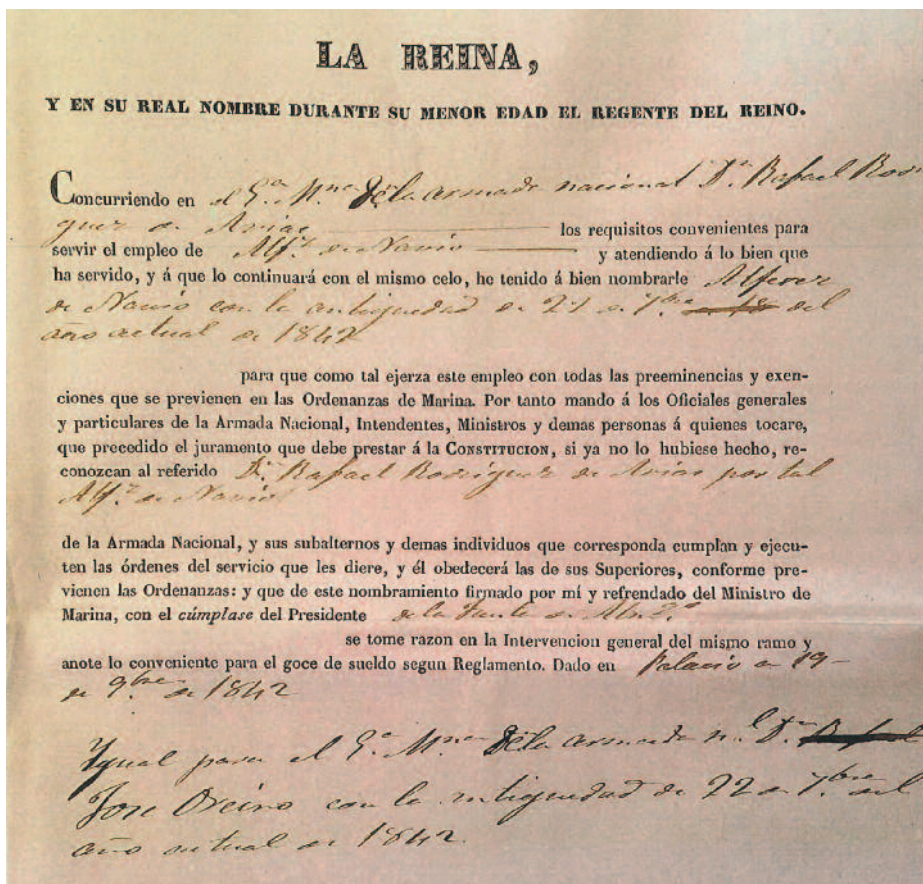 LA REINA,
Y EN SU REAL NOMBRE DURANTE SU MENOR EDAD EL REGENTE DEL REINO.
Concurriendo en el Ga. Mna. de la armada nacional Dn. Rafael Rodri
guez de Arias los requisitos convenientes para
servir el empleo de Alfz. de Navio y atendiendo á lo bien que
ha servido, y á que lo continuará con el mismo celo, he tenido á bien nombrarle Alferez
de Navio con la antiguedad de 21 de 7bre del
año actual de 1842
para que como tal ejerza este empleo con todas las preeminencias y exen-
ciones que se previenen en las Ordenanzas de Marina. Por tanto mando á los Oficiales generales
y particulares de la Armada Nacional, Intendentes, Ministros y demas personas á quienes tocare,
que precedido el juramento que debe prestar á la CONSTITUCION, si ya no lo hubiese hecho, re-
conozcan al referido Dn. Rafael Rodriguez de Arias por tal
Alfz. de Navio
de la Armada Nacional, y sus subalternos y demas individuos que corresponda cumplan y ejecu-
ten las órdenes del servicio que les diere, y él obedecerá las de sus Superiores, conforme pre-
vienen las Ordenanzas: y que de este nombramiento firmado por mí y refrendado del Ministro de
Marina, con el cúmplase del Presidente de la Junta de
se tome razon en la Intervencion general del mismo ramo y
anote lo conveniente para el goce de sueldo segun Reglamento. Dado en Palacio a 19
de 9bre de 1842
Igual para el Ga. Mna. de la armada nl. Dn.
Jose con la antiguedad de 22 de 7bre del
año actual de 1842.